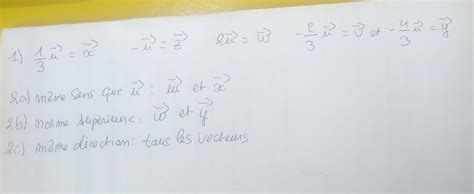 1) 1/3 u⃗ = x⃗   -u⃗ = z⃗   2u⃗ = w⃗   -2/3 u⃗ = v⃗ et -4/3 u⃗ = y⃗
2a) même sens que u⃗ : w⃗ et x⃗
2b) norme supérieure : w⃗ et y⃗
2c) même direction : tous les vecteurs